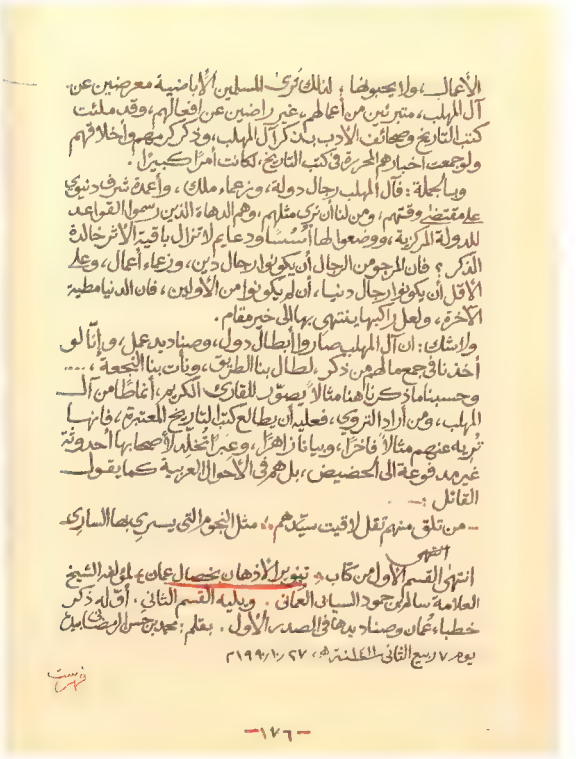 الأعمال، ولا يحبونها؛ لذلك ترى المسلمين الأباضية معرضين عن
آل المهلب، متبرئين من أعمالهم، غير راضين عن أفعالهم، وقد ملئت
كتب التاريخ وصحائف الأدب بذكر آل المهلب، وذكر كرمهم وأخلاقهم
ولو جمعت أخبارهم المحررة في كتب التاريخ، لكانت أمرًا كبيرًا.
وبالجملة: فآل المهلب رجال دولة، وزعماء ملك، وأعمدة شرف دنيوي
على مقتضى وقتهم، ومن لنا أن نرى مثلهم، وهم الدهاة الذين رسموا القواعد
للدولة المركزية، ووضعوا لها أسسًا ودعايم لا تزال باقية الأثر خالدة
الذكر؟ فان المرجو من الرجال أن يكونوا رجال دين، وزعماء أعمال، وعلى
الأقل أن يكونوا رجال دنيا، أن لم يكونوا من الأولين، فان الدنيا مطية
الآخرة، ولعل راكبها ينتهي بها الى خير مقام.
ولا شك: ان آل المهلب صاروا أبطال دول، وصناديد عمل، وإنّا لو
أخذنا في جمع ما لهم من ذكر، لطال بنا الطريق، ونأت بنا النجعة،....
وحسبنا ما ذكرناه هنا مثالاً يصوّر للقارئ الكريم، أنماطًا من آل
المهلب، ومن أراد التروي، فعليه أن يطالع كتب التاريخ المعتبرة، فانها
تريه عنهم مثالاً فاخرًا، وبيانا زاهرًا، وعبرًا تخلد لأصحابها أحدوثة
غير مدفوعة الى الحضيض، بل هم في الأحوال العربية كما يقول
القائل:-
- من تلق منهم تقل لاقيت سيّدهم ،، مثل النجوم التي يسري بها الساري-
انتهى
انتهى القسم الأول من كتاب «تنوير الأذهان بخصال عمان» لمؤلفه الشيخ
العلامة سالم بن حمود السيابي العماني. ويليه القسم الثاني. أوّله ذكر
خطباء عُمان وصناديدها في الصدر الأول. بقلم: محمد بن حسن الرمضاني
يوم ٧ ربيع الثاني سنة ١٤١١هـ، ٢٧/١٠/١٩٩٠م
فهرست
-١٧٦-